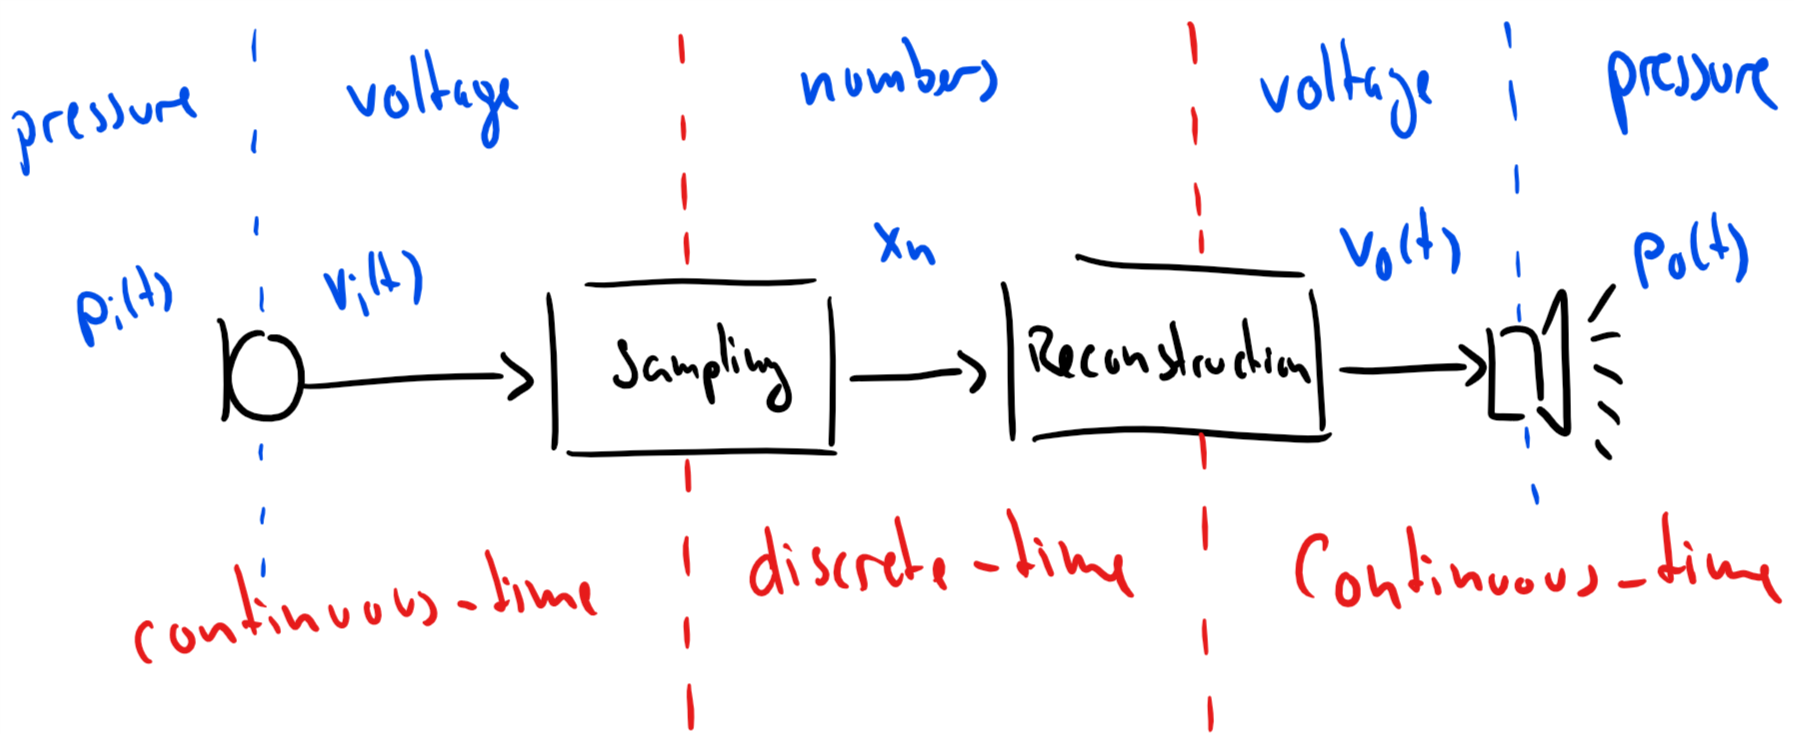 pressure voltage numbers voltage pressure
pi(t) vi(t) xn vo(t) po(t)
Sampling Reconstruction
continuous-time discrete-time Continuous-time